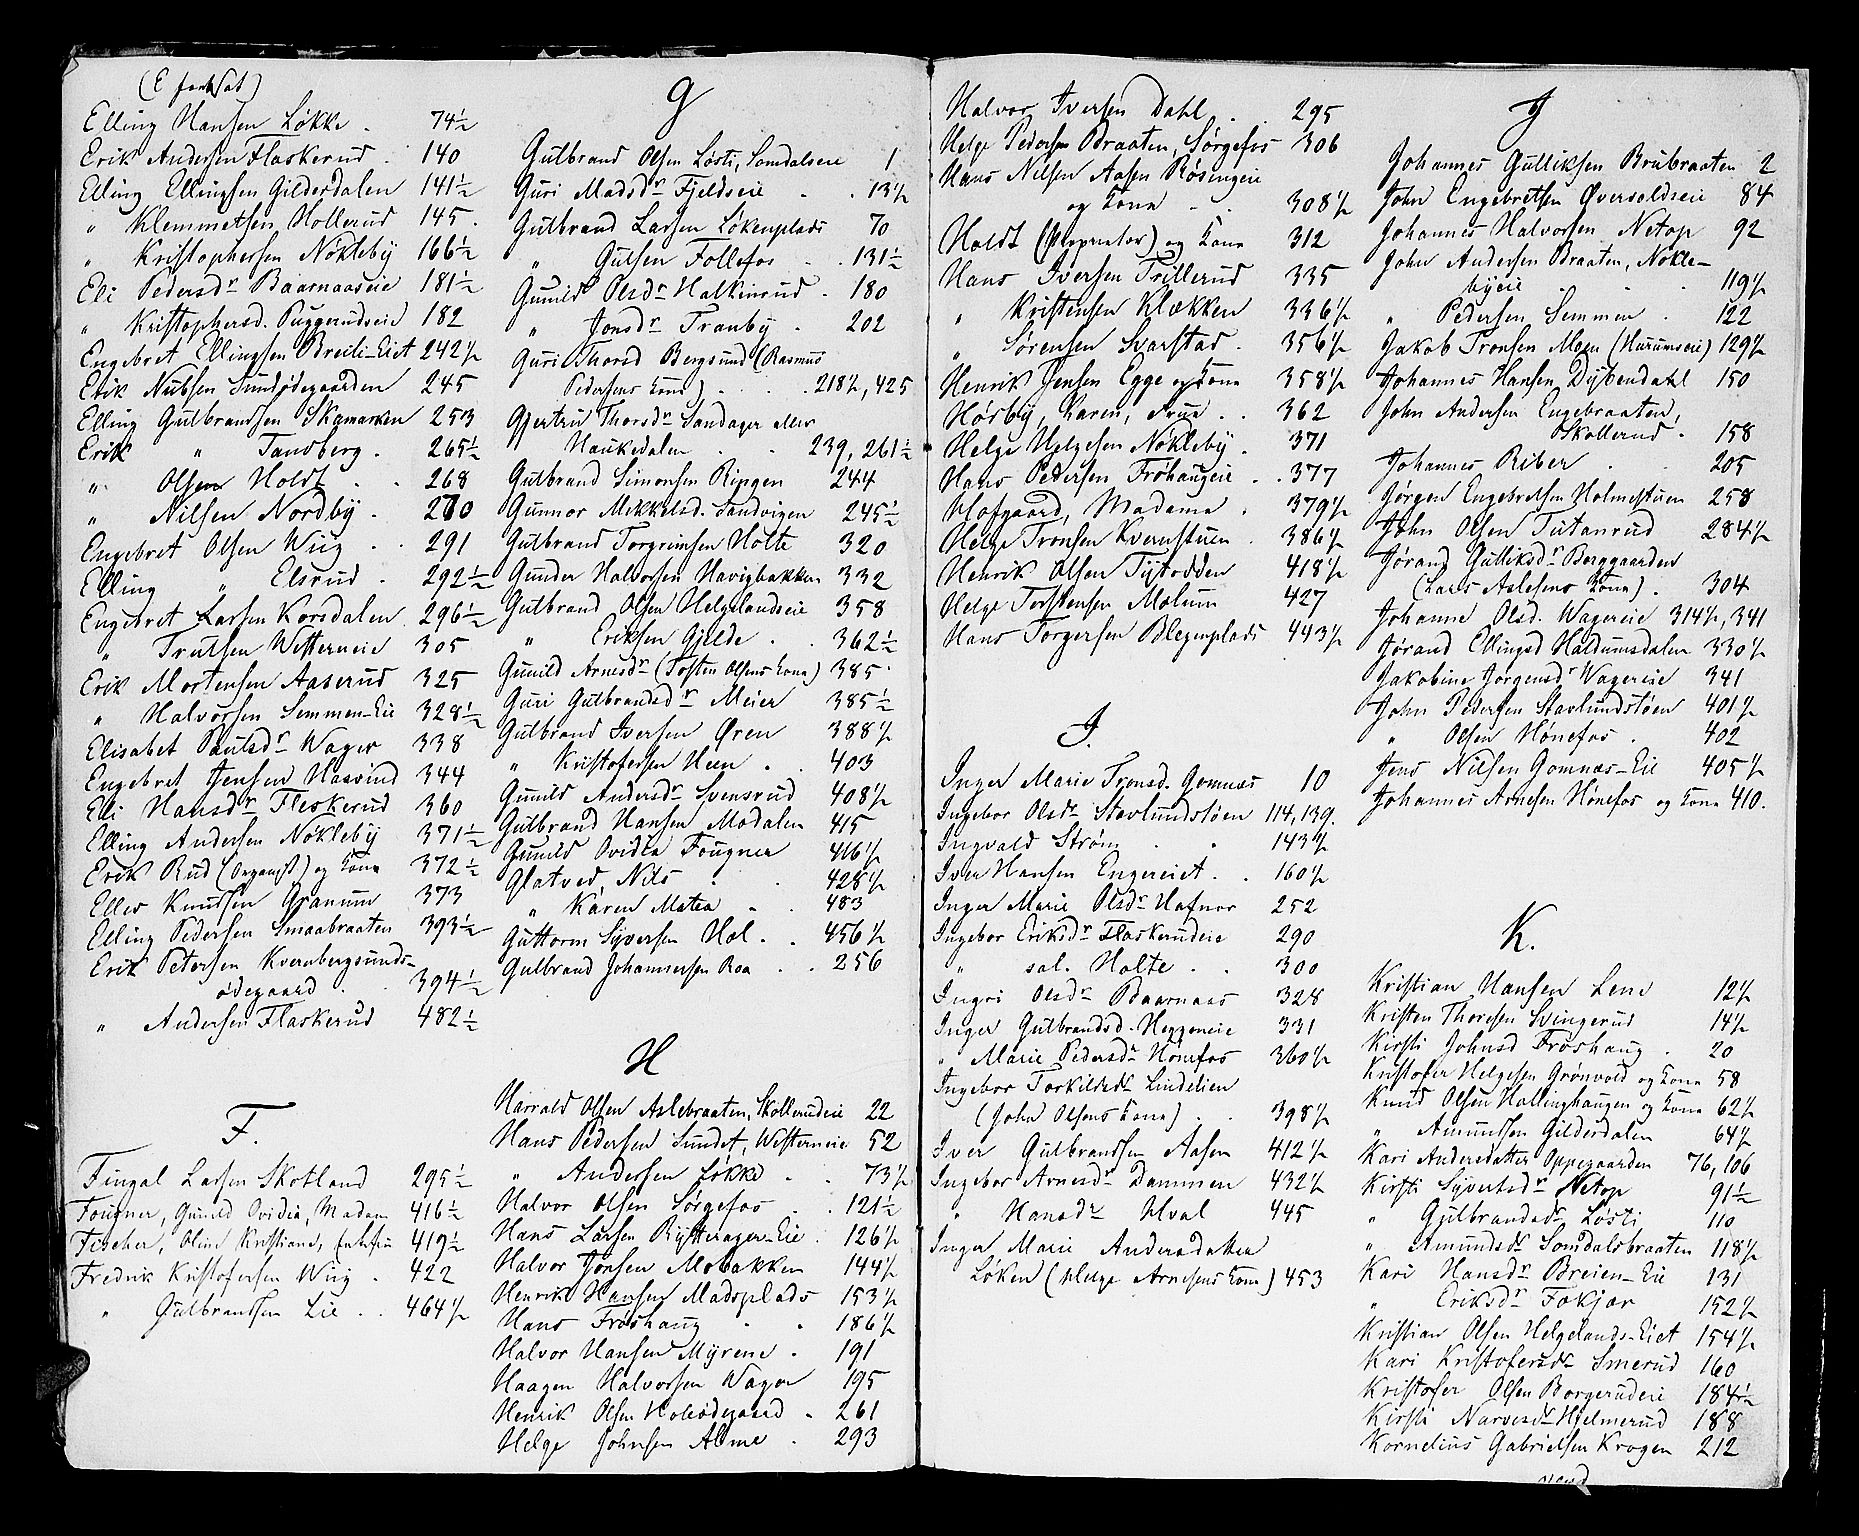 (E fortsat)
Elling Hansen Løkke . 74½
Erik Andersen Flaskerud . 140
Elling Ellingsen Gilderdalen 141½
" Klemmetsen Hollerud 145 .
" Kristophersen Nøkleby 166½
Eli Pedersdr Baarnaaseie 181½
" Kristophersd. Puggerudseie 182
Engebret Ellingsen Breili-Eiet 242½
Erik Nubsen Sundødegaarden 245
Elling Gulbrandsen Skamarken 253
Erik " Tandberg . 265½
" Olsen Holdt . . 268
" Nilsen Nordby . 270
Engebret Olsen Wiig . . 291
Elling " Elsrud . 292½
Engebret Larsen Korsdalen 296½
" Trulsen Westerneie 305
Erik Mortensen Aaserud 325
" Halvorsen Semmen-Eie 328½
Elisabet Paulsdr Wager 338
Engebret Jensen Haavind 344
Eli Hansdr Fleskerud 360
Elling Andersen Nøkleby 371½
Erik Rud (Organist) og Kone 372½
Eller Knudsen Granum 373
Elling Pedersen Smaabraaten 393½
Erik Petersen Kvernbergsunds-
ødegaard . . 394½
" Andersen Flaskerud 482½
F.
Fingal Larsen Skotland 295½
Fougner, Gunild Ovidia, Madam 416½
Fischer, Oline Kristiane, Enkefru 419½
Fredrik Kristofersen Wiig . 422
" Gulbrandsen Lie . . 464½
G
Gulbrand Olsen Løsti, Somdalseie 1
Guri Madsdr Fjeldseie . . 13½
Gulbrand Larsen Løkenplads 70
" Gulsen Follefos . . 131½
Gunild Olsdr Halkinrud . 180
" Jonsdr Tranby . 202
Guri Thorsd Bergsund (Rasmus
Pedersens Kone) . . . 218½, 425
Gjertru Thorsdr Sandager eller
Haukedalen . . 239, 261½
Gulbrand Simonsen Ringen 244
Gunnor Mikkelsd. Sandvigen 245½
Gulbrand Torgrimsen Holte 320
Gunder Halvorsen Havigbakken 332
Gulbrand Olsen Helgelandseie 358
" Eriksen Gjelde . . 362½
Gunild Arnesdr (Tosten Olsens Kone) 385
Guri Gulbrandsdr Meier 385½
Gulbrand Iversen Øren 388½
" Kristofersen Heen . . 403
Gunild Andersdr Svensrud 408½
Gulbrand Hansen Modalen 415
Gunild Ovidia Fougner 416½
Glatved, Nils . . 428½
" Karen Matea . . 483
Guttorm Syversen Hol . . 456½
Gulbrand Johannersen Roa . . 256
H
Harrald Olsen Aslebraaten, Skollerudeie 22
Hans Pedersen Sundet, Westerneie 52
" Andersen Løkke . . 73½
Halvor Olsen Sørgefos . . 121½
Hans Larsen Rytterager-Eie . 126½
Halvor Jonsen Mobakken 144½
Henrik Hansen Madsplads 153½
Hans Froshaug . . 186½
Halvor Hansen Myrene . 191
Haagen Halvorsen Wager 195
Henrik Olsen Holeødegaard . 261
Helge Johnsen Alme . 293
Halvor Iversen Dahl . . 295
Helge Pedersen Braaten, Sørgefos 306
Hans Nilsen Aasen Røsengeie
og Kone . . 308½
Holdt (Proprietør) og Kone 312
Hans Iversen Trillerud 335
" Kristensen Klækken 336½
" Sørensen Svarstad . 356½
Henrik Jensen Egge og Kone 358½
Høsby, Karen, Frue . . 362
Helge Helgesen Nøkleby . 371
Hans Pedersen Frøhaugeie . . 377
Hofgaard, Madame . 379½
Helge Tronsen Kvernstuen . 386½
Henrik Olsen Tytodden 418½
Helge Torstensen Moluun 427
Hans Torgersen Blegenplads 443½
I.
Inger Marie Tronsd. Gomnæs 10
Ingebor Olsdr Stavlundstøen 114, 139.
Ingvald Strøm . . 143½
Iver Hansen Engereiet . . 160½
Inger Marie Olsdr Hafnor 252
Ingebor Eriksdr Flaskerudeie 290
" sal. Holte . . 300
Ingri Olsdr Baarnaas 328
Inger Gulbrandsd. Heggeneie 331
" Marie Pedersdr Hønefos 360½
Ingebor Torkildsdr Lindelien
(John Olsens Kone) . . 398½
Iver Gulbrandsen Aasen 412½
Ingebor Arnesdr Dammen 432½
" Hansdr Hval 445
Inger Marie Andersdatter
Løken (Helge Arnesens Kone) 453
J
Johannes Gulliksen Brubraaten 2
John Engebretsen Øvervoldseie 84
Johannes Halvorsen Netop 92
John Andersen Braaten, Nøkle-
byeie . . . 119½
" Pedersen Semmen . 122
Jakob Tronsen Moen (Harumseie) 129½
Johannes Hansen Dybendahl 150
John Andersen Engebraaten,
Skollerud . 158
Johannes Riber . . 205
Jørgen Engebretsen Holmestuen 258
John Olsen Tutanrud 284½
Jørand Gulliksdr Berggaarden
(Lars Aslesens Kone) . 304
Johanne Olsd. Wagereie 314½, 341
Jørand Ellingsd Haldumsdalen 330½
Jakobine Jørgensdr Wagereie 341
John Pedersen Stavlundstøen 401½
" Olsen Hønefos . 402
Jens Nilsen Gomnæs-Eie 405½
Johannes Arnesen Hønefos og Kone 410.
K.
Kristian Hansen Lene 12½
Kristen Thoresen Svingerud 14½
Kirsti Johnsd Froshaug . 20
Kristofer Helgesen Grønvold og Kone 58
Knud Olsen Hallinghaugen og Kone 62½
" Amundsen Gilderdalen 64½
Kari Andersdatter Oppegaarden 76, 106
Kirsti Syvertsdr Netop 91½
" Gulbrandsdr Løsti 110
" Amundsdr Somdalsbraaten 118½
Kari Hansdr Breien-Eie 131
" Eriksdr Fokjær 152½
Kristian Olsen Helgelands-Eiet 154½
Kari Kristofersdr Smerud 160
Kristofer Olsen Borgerudeie 184½
Kirsti Narvesdr Hjelmerud 188
Kornelius Gabrielsen Krogen 212
vend